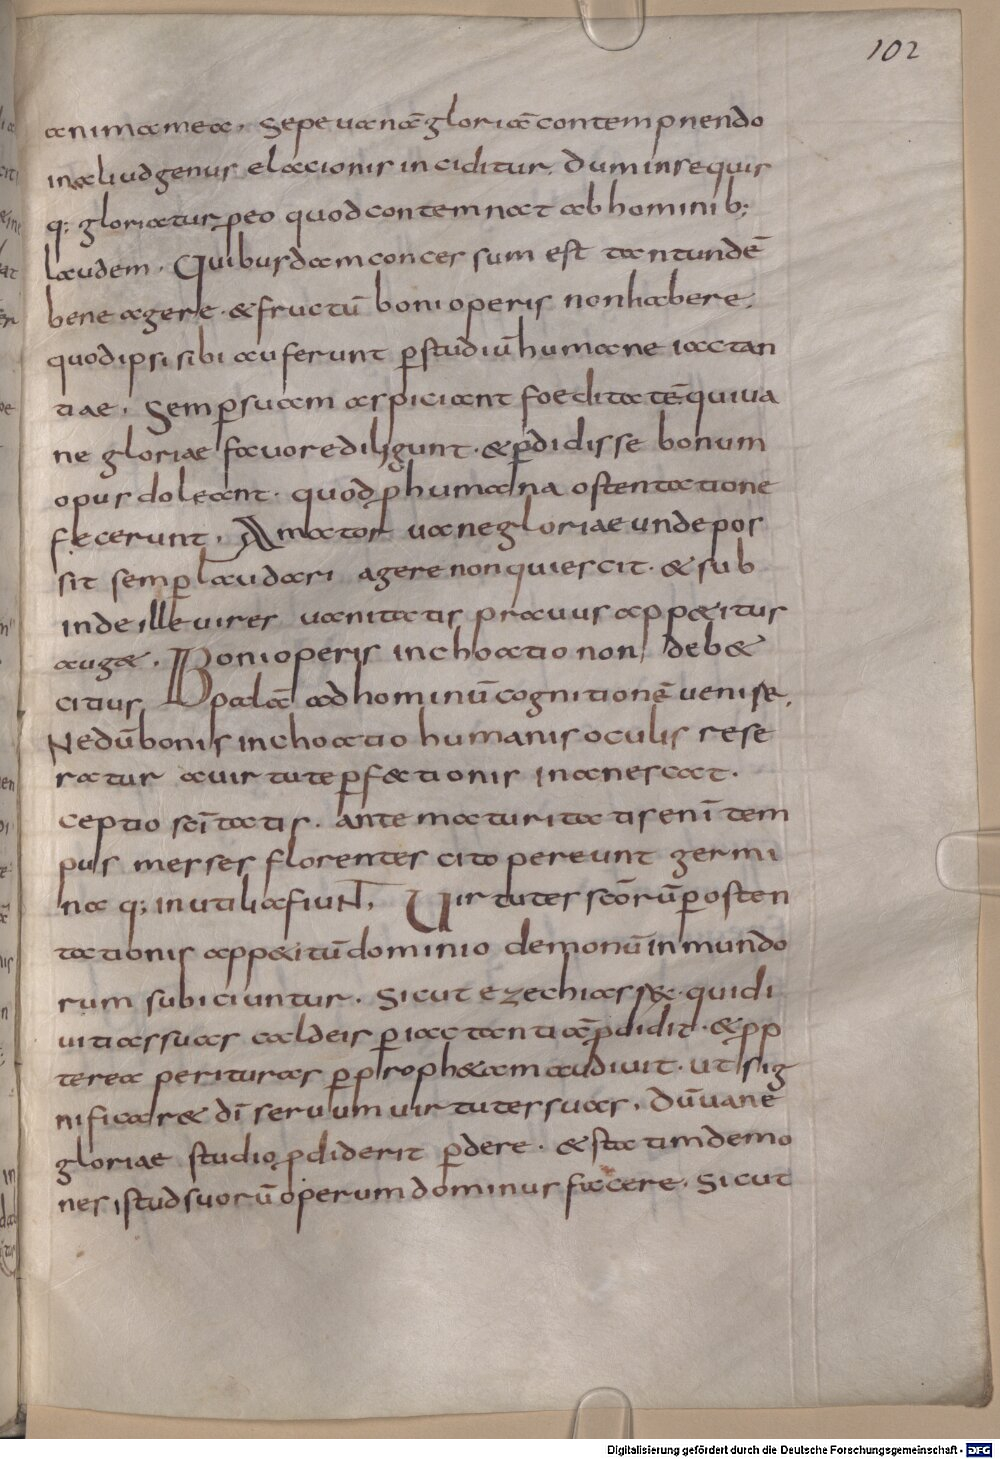 102
anima mea. Sepe uanā gloriā contempnendo
in aliud genus elaccionis inciditur. Dum in se quis
q: gloriatur p eo quod contemnat ab hominib;
laudem. Quibusdam concessum est tantundē
bene agere. & fructū boni operis non habere.
quod ipsi sibi auferunt p̄ studiū humane iactan
tiae. Semp̄ suam aspiciant foeditatē qui ua
ne gloriae fauore diligunt. & p̄didisse bonum
opus doleant. quod p̄ humana ostentatione
fecerunt. Amator uane gloriae unde pos
sit semp̄ laudari agere non quiescit. & sub
inde ille uires uanitatis prauus app&itus
aug&. Boni operis inchoatio non deb&
citius palā ad hominū cognitionē uenire.
Ne dū bonis inchoatio humanis oculis rese
ratur a uirtute p̄f&tionis inanescat.
ceptio sc̄itatis. ante maturitatis eni̅ tem
pus messes florentes cito pereunt germi
na q; inutilia fiuNT. Uirtutes sc̄orū p̄ osten
tationis app&itū dominio demonū in mundo
rum subiciuntur. Sicut ezechias r&. qui di
uitias suas caldeis p̄ iactantiā p̄didit. & p̄pp
terea perituras p̄ proph&am audiuit. ut sig
nificar& dī seruum uirtutes suas. Dū uane
gloriae studio p̄diderit p̄dere. & statim demo
nes istud suorū operum dominus facere. Sicut
Digitalisierung gefördert durch die Deutsche Forschungsgemeinschaft - DFG